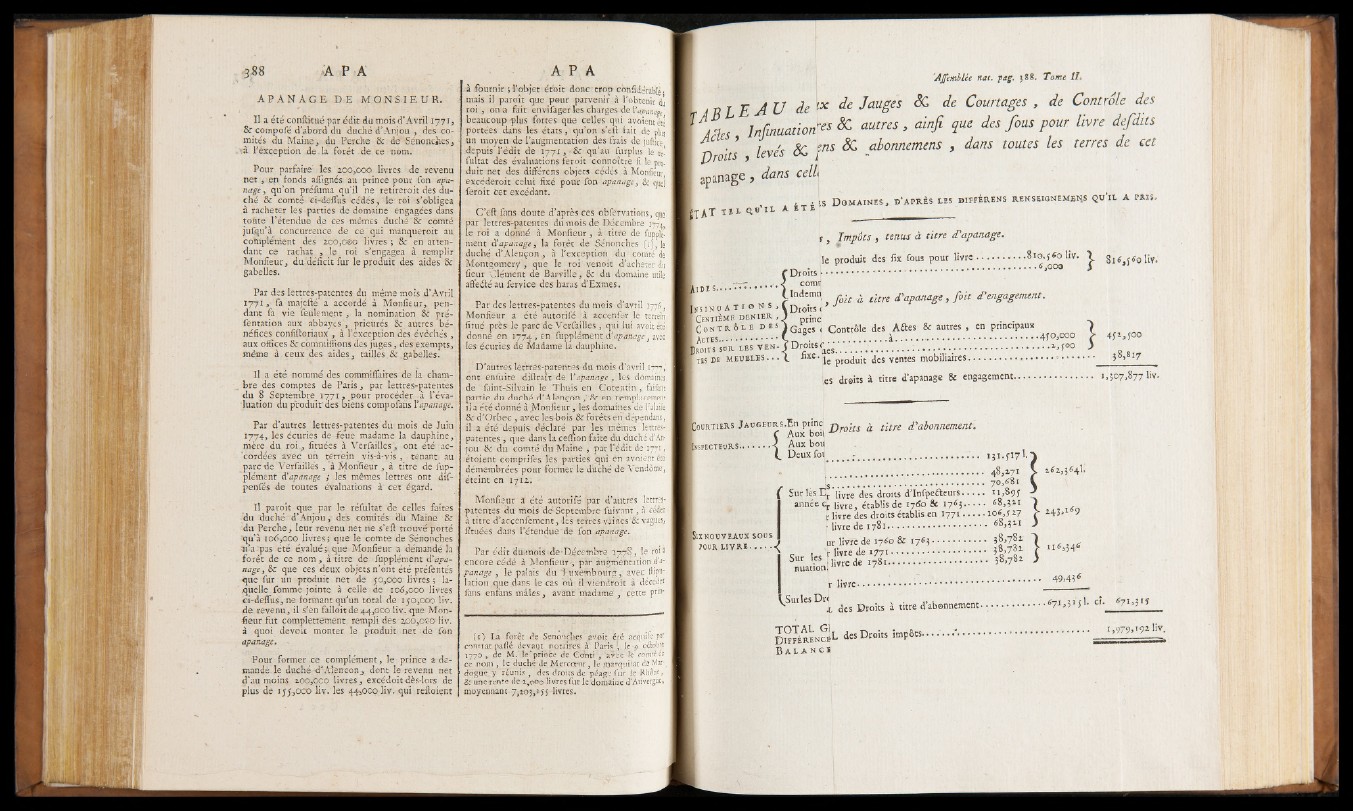 388 A P A
APANAGE DE MONSIEUR.
Il a été constitué par édit du mois d'Avril 1771,
& composé d'abord du duché d'Anjou, des co-
mités du Maine, du Perche & de Senonches,
à l'exception de la forêt de ce nom.
Pour parfaire les 200,000 livres de revenu
net, en fonds assignés au prince pour son apa-
nage, qu'on présuma qu'il ne retireroit des du-
ché & comté ci-dessus cédés, le roi s'obligea
à racheter les parties de domaine engagées dans
toute l'étendue de ces mêmes duché & comté
jusqu'à concurrence de ce qui manqueroit au
complément des 200,000 livres; & en atten-
dant ce rachat, le roi s'engagea à remplir
Monsieur, du déficit sur le produit des aides &
gabelles.
Par des lettres-patentes du même mois d'Avril
1771, sa majesté a accordé à Monsieur, pen-
dant sa vie seulement, la nomination & pré-
sentation aux abbayes, prieurés & autres bé-
néfices consistoriaux, à l'exception des évêchés,
aux offices & commissions des juges, des exempts,
même à ceux des aides, tailles & gabelles.
Il a été nommé des commissaires de la cham-
bre des comptes de Paris, par lettres-patentes
du 8 Septembre 1771, pour procéder à l'éva-
luation du produit des biens composans l'apanage.
Par d'autres lettres-patentes du mois de Juin
1774, les écuries de feue madame la dauphine,
mère du roi, situées à Versailles, ont été ac-
cordées avec un terrein vis-à-vis, tenant au
parc de Versailles, à Monsieur, à titre de sup-
plément d'apanage; les mêmes lettres ont dis-
pensés de toutes évaluations à cet égard.
Il paroît que par le résultat de celles faites
du duché d'Anjou, des comités du Maine &
du Perche, leur revenu net ne s'est trouvé porté
qu'à 106,000 livres; que le comte de Sénonches
n'a pas été évalué; que Monsieur a demandé la
forêt de ce nom, à titre de supplément d'apa-
nage, & que ces deux objets n'ont été présentés
que sur un produit net de 50,000 livres; la-
quelle somme jointe à celle des 106,000 livres
ci-dessus, ne formant qu'un total de 150,000 liv.
de revenu, il s'en falloit de 44,000 liv. que Mon-
sieur fut complettement rempli des 200,000 liv.
à quoi devoit monter le produit net de son
apanage.
Pour former ce complément, le prince a de-
mandé le duché d'Alençon, dont le revenu net
d'au moins 200,000 livres, excédoit dès-lors de
plus de 155,000 liv. les 44,000 liv. qui restoient
A P A
à fournir; l'objet étoit donc trop considérable;
mais il paroît que pour parvenir à l'obtenir du
roi, on a fait envisager les charges de l'apanage,
beaucoup plus fortes que celles qui avoient été
portées dans les états, qu'on s'est fait de plus
un moyen de l'augmentation des frais de justice,
depuis l'édit de 1771, & qu'au surplus le ré-
sultat des évaluations feroit connoître si le pro-
duit net des différens objets cédés à Monsieur,
excéderoit celui fixé pour son apanage, & quel
seroit cet excédant.
C'est sans doute d'après ces observations, que
par lettres-patentes du mois de Décembre 1774,
le roi a donné à Monsieur, à titre de supplé-
ment d'apanage, la forêt de Sénonches (1), le
duché d'Alençon, à l'exception du comté de
Montgomery, que le roi venoit d'acheter du
sieur Clément de Barville, & du domaine utile
affecté au service des haras d'Exmes.
Par des lettres-patentes du mois d'avril 1775,
Monsieur a été autorisé à accenser le terrein
situé près le parc de Versailles, qui lui avoit été
donné en 1774, en supplément d'apanage, avec
les écuries de Madame la dauphine.
D'autres lettres-patentes du mois d'avril 1777,
ont ensuite distrait de l'apanage, les domaines
de saint-Silvain le Thuis en Cotentin, faisant
partie du duché d'Alençon; & en remplacement
il a été donné à Monsieur, les domaines de Falaise
& d'Orbec, avec les bois & forêts en dépendans,
il a été depuis déclaré par les mêmes lettres-
patentes, que dans la cession faite du duché d'An-
jou & du comté du Maine, par l'édit de 1771,
étoient comprises les parties qui en avoient été
démembrées pour former le duché de Vendôme,
éteint en 1712.
Monsieur a été autorisé par d'autres lettres-
patentes du mois de Septembre suivant, à céder
à titre d'accensement, les terres vaines & vagues,
situées dans l'étendue de son apanage.
Par édit du mois de Décembre 1778, le roi a
encore cédé à Monsieur, par augmentation d'a-
panage, le palais du Luxembourg, avec stipu-
lation que dans le cas où il viendroit à décéder
sans enfans mâles, avant madame, cette prin-
(1) La forêt de Senonches avoit été acquise par
contrat passé devant notaires à Paris, le 9 octobre
1770, de M. le prince de Conti, avec le comté de
ce nom, le duché de Mercœur, le marquisat de Mar-
dogue y réunis, des droits de péage sur le Rhône,
& une rente de 2,000 livres sur le domaine d'Auvergne,
moyennant 7,203,255 livres.
Assemblée nat. pag. 388. Tome II.
TABLEAU de
Actes, Insinuation
Droits, levés &
apanage, dans cell
ix de Jauges & de Courtages, de Contrôle des
res & autres, ainsi que des sous pour livre desdits
ens & abonnemens, dans toutes les terres de cet
ÉTAT TEL QU'IL A ÉTÉ
is DOMAINES, D'APRÈS LES DIFFÉRENS RENSEIGNEMENS QU'IL A PRIS.
r, Impôts, tenus à titre d'apanage.
le produit des six sous pour livre..........810,560 liv.
6,000
816,560 liv.
AIDES............
Droits
come
Indemn
, soit à titre d'apanage, soit d'engagement.
INSINUATIONS,
CENTIÈME DENIER,
CONTRÔLE DES
ACTES............
Droits
princ
Gages
Contrôle des Actes & autres, en principaux
à..............................450,000
452,500
DROITS SUR LES VEN-
TES DE MEUBLES...
Droits
fixe.
es..............................2,500
le produit des ventes mobiliaires.................... 38,817
es droits à titre d'apanage & engagement................ 1,307,877 liv.
COURTIERS JAUGEURS.
INSPECTEURS........
En princ
Aux boi
Aux bou
Deux sou
Droits à titre d'abonnement.
131,517 l.
48,271
s................................70,681
262,364 l.
SIX NOUVEAUX SOUS
POUR LIVRE......
Sur les D
année c
r livre des droits d'Inspecteurs..... 11,895
r livre, établis de 1760 & 1763..... 68,321
r livre des droits établis en 1771......106,527
r livre de 1781.................. 68,321
243,169
Sur les
nuation
ur livre de 1760 & 1763............ 38,782
r livre de 1771.................. 38,782
livre de 1781.................. 38,782
116,346
Sur les Dr
r livre.................................. 49,436
des Droits à titre d'abonnement............671,315 l. ci. 671,315
TOTAL G
DIFFÉRENCE
BALANCE
L des Droits impôts............................ 1,979,192 liv.